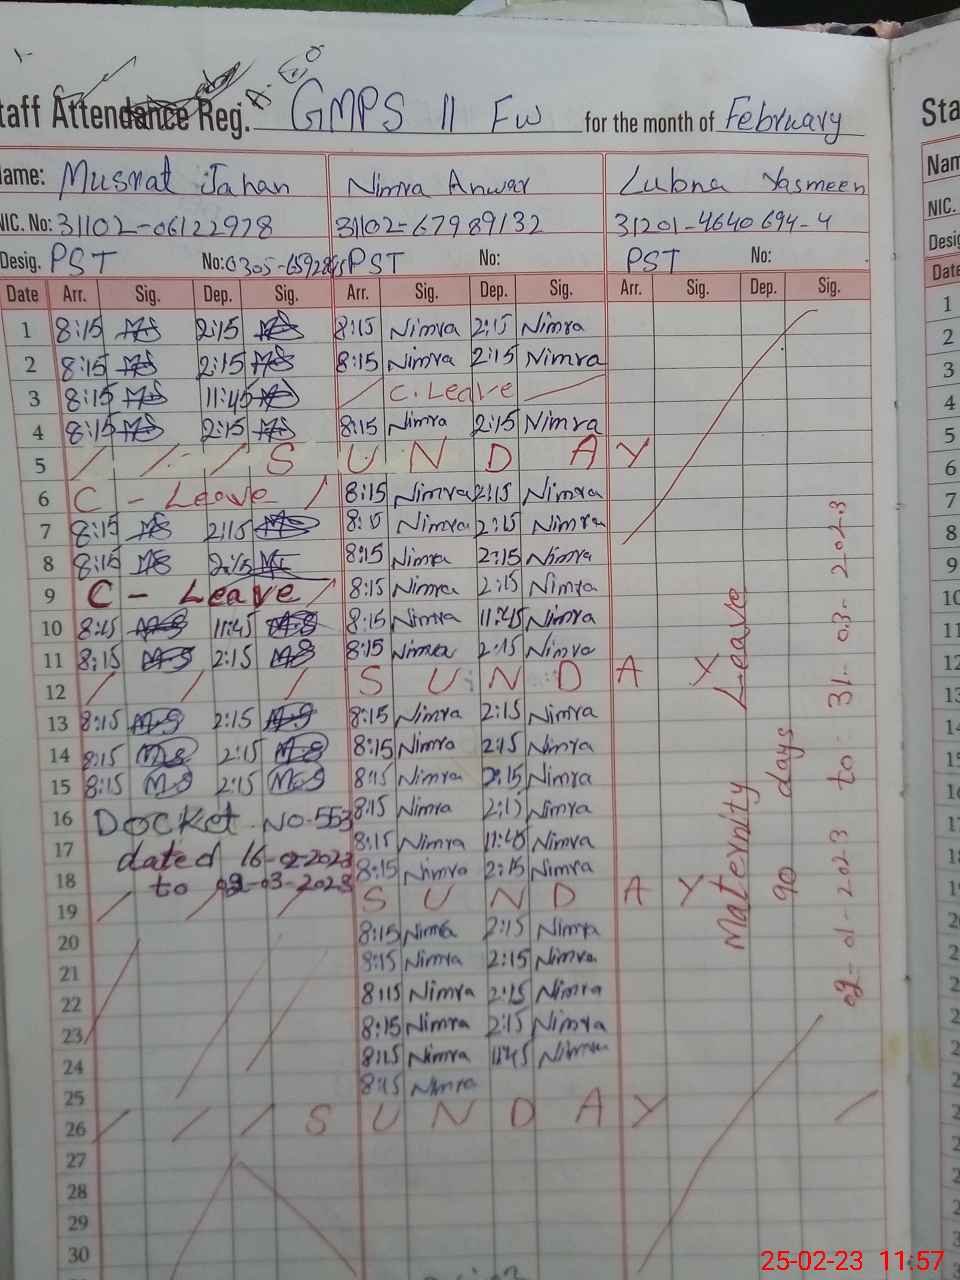 Staff Attendance Reg. GMPS 11 FW for the month of February Sta
Name: Musrat Jahan Nimra Anwar Lubna Yasmeen Nam
NIC. No: 31102-06122978 31102-67989132 31201-4640694-4 NIC.
Desig. PST No: PST No: PST No: Desig
Date Arr. Sig. Dep. Sig. Arr. Sig. Dep. Sig. Arr. Sig. Dep. Sig. Date
1 8:15 MS 2:15 MS 8:15 Nimra 2:15 Nimra 1
2 8:15 MS 2:15 MS 8:15 Nimra 2:15 Nimra 2
3 8:15 MS 11:45 MS C. Leave 3
4 8:15 MS 2:15 MS 8:15 Nimra 2:15 Nimra 4
5 S U N D A Y 5
6 C - Leave 8:15 Nimra 2:15 Nimra 6
7 8:15 MS 2:15 MS 8:15 Nimra 2:15 Nimra 7
8 8:15 MS 2:15 MS 8:15 Nimra 2:15 Nimra 8
9 C - Leave 8:15 Nimra 2:15 Nimra 9
10 8:15 MS 11:45 MS 8:15 Nimra 11:45 Nimra 10
11 8:15 M-S 2:15 MS 8:15 Nimra 2:15 Nimra 11
12 S U N D A Y 12
13 8:15 M-S 2:15 M-S 8:15 Nimra 2:15 Nimra 13
14 8:15 M-S 2:15 M-S 8:15 Nimra 2:15 Nimra 14
15 8:15 M-S 2:15 M-S 8:15 Nimra 2:15 Nimra
16 Docket NO-553 8:15 Nimra 2:15 Nimra
17 dated 16-02-2023 8:15 Nimra 11:45 Nimra
18 to 02-03-2023 8:15 Nimra 2:15 Nimra
19 S U N D A Y
20 8:15 Nimra 2:15 Nimra
21 8:15 Nimra 2:15 Nimra
22 8:15 Nimra 2:15 Nimra
23 8:15 Nimra 2:15 Nimra
24 8:15 Nimra 11:45 Nimra
25 8:15 Nimra
26 S U N D A Y
27
28
29
30
Maternity Leave
90 days
02-01-2023 to: 31-03-2023
25-02-23 11:57